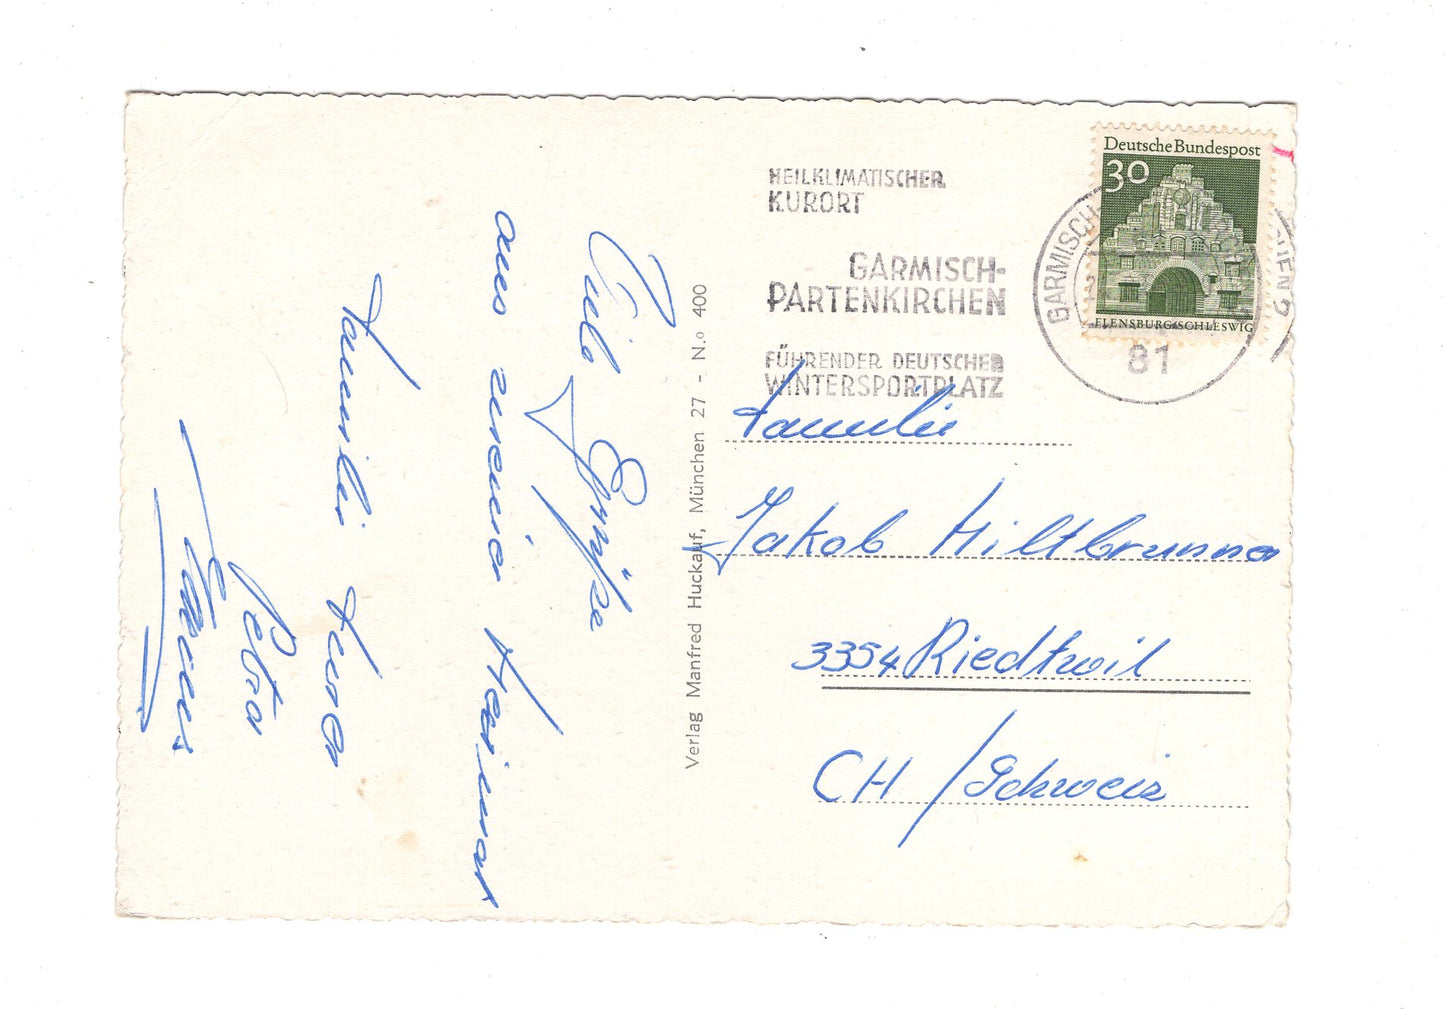 HEILKLIMATISCHER
KURORT
GARMISCH-
PARTENKIRCHEN
FÜHRENDER DEUTSCHER
WINTERSPORTPLATZ
GARMISCH-
81
Deutsche Bundespost
30
FLENSBURG/SCHLESWIG
Familie
Jakob Hiltbrunner
3354 Riedtwil
CH / Schweiz
Verlag Manfred Huckauf, München 27 - N.o 400
Viele Grüße
aus
Familie
Petra